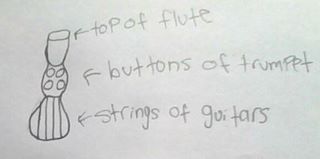 top of flute
buttons of trumpet
strings of guitars